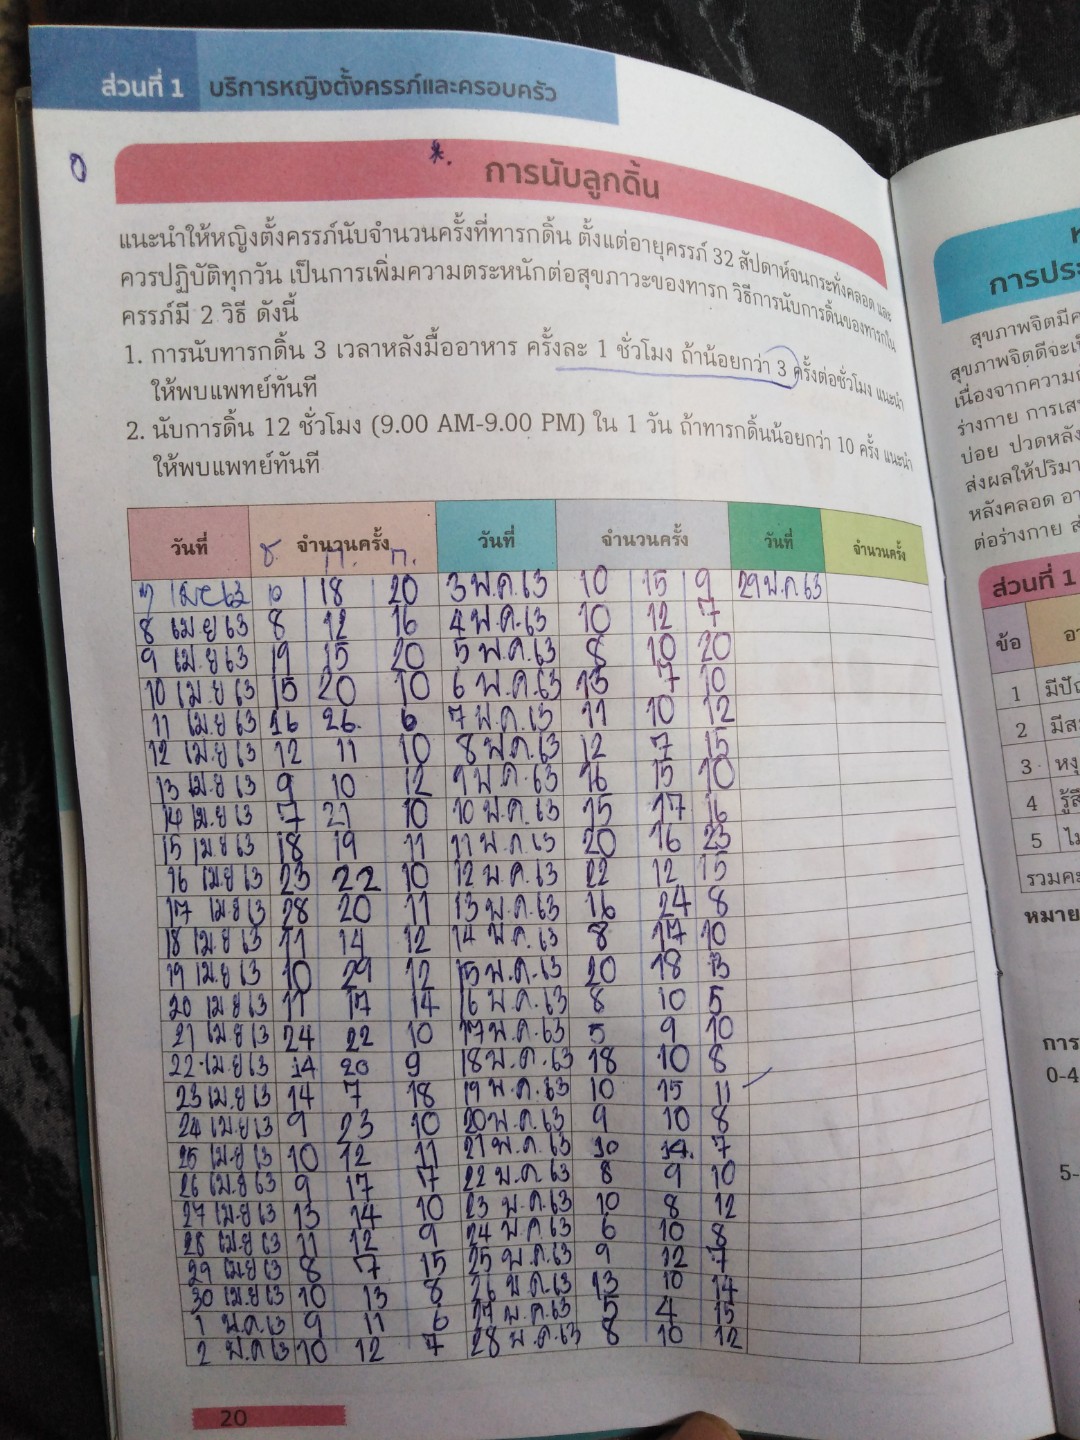 ส่วนที่ 1 บริการหญิงตั้งครรภ์และครอบครัว
*.
การนับลูกดิ้น
แนะนำให้หญิงตั้งครรภ์นับจำนวนครั้งที่ทารกดิ้น ตั้งแต่อายุครรภ์ 32 สัปดาห์จนกระทั่งคลอด และ
ควรปฏิบัติทุกวัน เป็นการเพิ่มความตระหนักต่อสุขภาวะของทารก วิธีการนับการดิ้นของทารกใน
ครรภ์มี 2 วิธี ดังนี้
1. การนับทารกดิ้น 3 เวลาหลังมื้ออาหาร ครั้งละ 1 ชั่วโมง ถ้าน้อยกว่า 3 ครั้งต่อชั่วโมง แนะนำ
ให้พบแพทย์ทันที
2. นับการดิ้น 12 ชั่วโมง (9.00 AM-9.00 PM) ใน 1 วัน ถ้าทารกดิ้นน้อยกว่า 10 ครั้ง แนะนำ
ให้พบแพทย์ทันที
วันที่ จำนวนครั้ง วันที่ จำนวนครั้ง วันที่ จำนวนครั้ง
7 10 18 20 3 พ.ค.63 10 15 9 29 พ.ค.63
8 เม.ย 63 8 12 16 4 พ.ค.63 10 12 7
9 เม.ย 63 19 15 20 5 พ.ค.63 8 10 20
10 เม.ย 63 15 20 10 6 พ.ค.63 13 7 10
11 เม.ย 63 16 26. 6 7 พ.ค.63 11 10 12
12 เม.ย 63 12 11 10 8 พ.ค.63 12 7 15
13 เม.ย 63 9 10 12 9 พ.ค.63 16 15 10
14 เม.ย 63 7 21 10 10 พ.ค.63 15 17 16
15 เม.ย 63 18 19 11 11 พ.ค.63 20 16 23
16 เม.ย 63 23 22 10 12 พ.ค.63 22 12 15
17 เม.ย 63 28 20 11 13 พ.ค.63 16 24 8
18 เม.ย 63 11 14 12 14 พ.ค.63 8 17 10
19 เม.ย 63 10 29 12 15 พ.ค.63 20 18 13
20 เม.ย 63 11 17 14 16 พ.ค.63 8 10 5
21 เม.ย 63 24 22 10 17 พ.ค.63 5 9 10
22 เม.ย 63 14 20 9 18 พ.ค.63 18 10 8
23 เม.ย 63 14 7 18 19 พ.ค.63 10 15 11
24 เม.ย 63 9 23 10 20 พ.ค.63 9 10 8
25 เม.ย 63 10 12 11 21 พ.ค.63 10 14. 7
26 เม.ย 63 9 17 17 22 พ.ค.63 8 9 10
27 เม.ย 63 13 14 10 23 พ.ค.63 10 8 12
28 เม.ย 63 11 12 9 24 พ.ค.63 6 10 8
29 เม.ย 63 8 7 15 25 พ.ค.63 9 12 7
30 เม.ย 63 10 13 8 26 พ.ค.63 13 10 14
1 พ.ค.63 9 11 6 27 พ.ค.63 5 4 15
2 พ.ค.63 10 12 7 28 พ.ค.63 8 10 12
20
การประ
สุขภาพจิตมีค
สุขภาพจิตดีจะเป็
เนื่องจากความ
ร่างกาย การเส
บ่อย ปวดหลัง
ส่งผลให้ปริมา
หลังคลอด อา
ต่อร่างกาย ส
ส่วนที่ 1
ข้อ อา
1 มีปัญ
2 มีสม
3 หงุ
4 รู้สึ
5 ไม
รวมคะ
หมาย
การ
0-4
5-